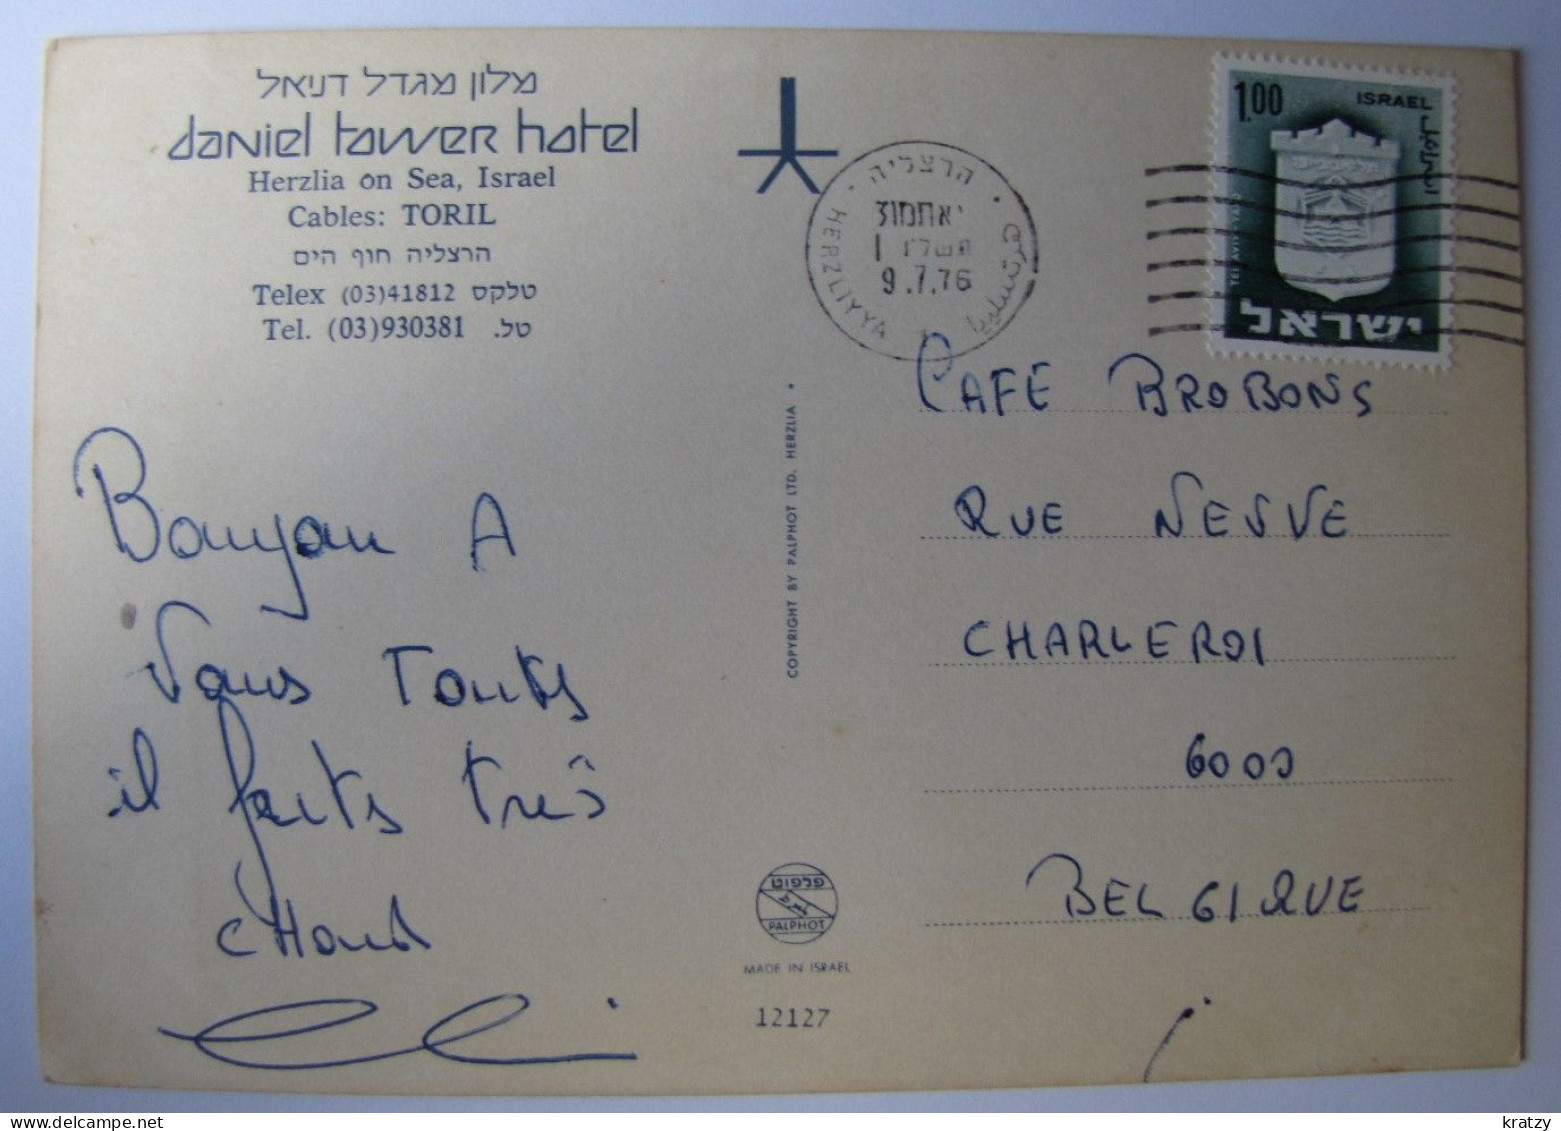 מלון מגדל דניאל
daniel tower hotel
Herzlia on Sea, Israel
Cables: TORIL
הרצליה חוף הים
Telex (03)41812 טלקס
Tel. (03)930381 טל.
הרצליה
HERZLIYYA
9.7.76
1.00 ISRAEL
اسرائيل
TEL AVIV-YAFO
ישראל
Bonjour A
Vous Touts
il faits très
cHaud
COPYRIGHT BY PALPHOT LTD. HERZLIA •
פלפוט
PALPHOT
MADE IN ISRAEL
12127
CAFE BROBONS
RUE NEUVE
CHARLEROI
6000
BELGIQUE
delcampe.net
kratzy